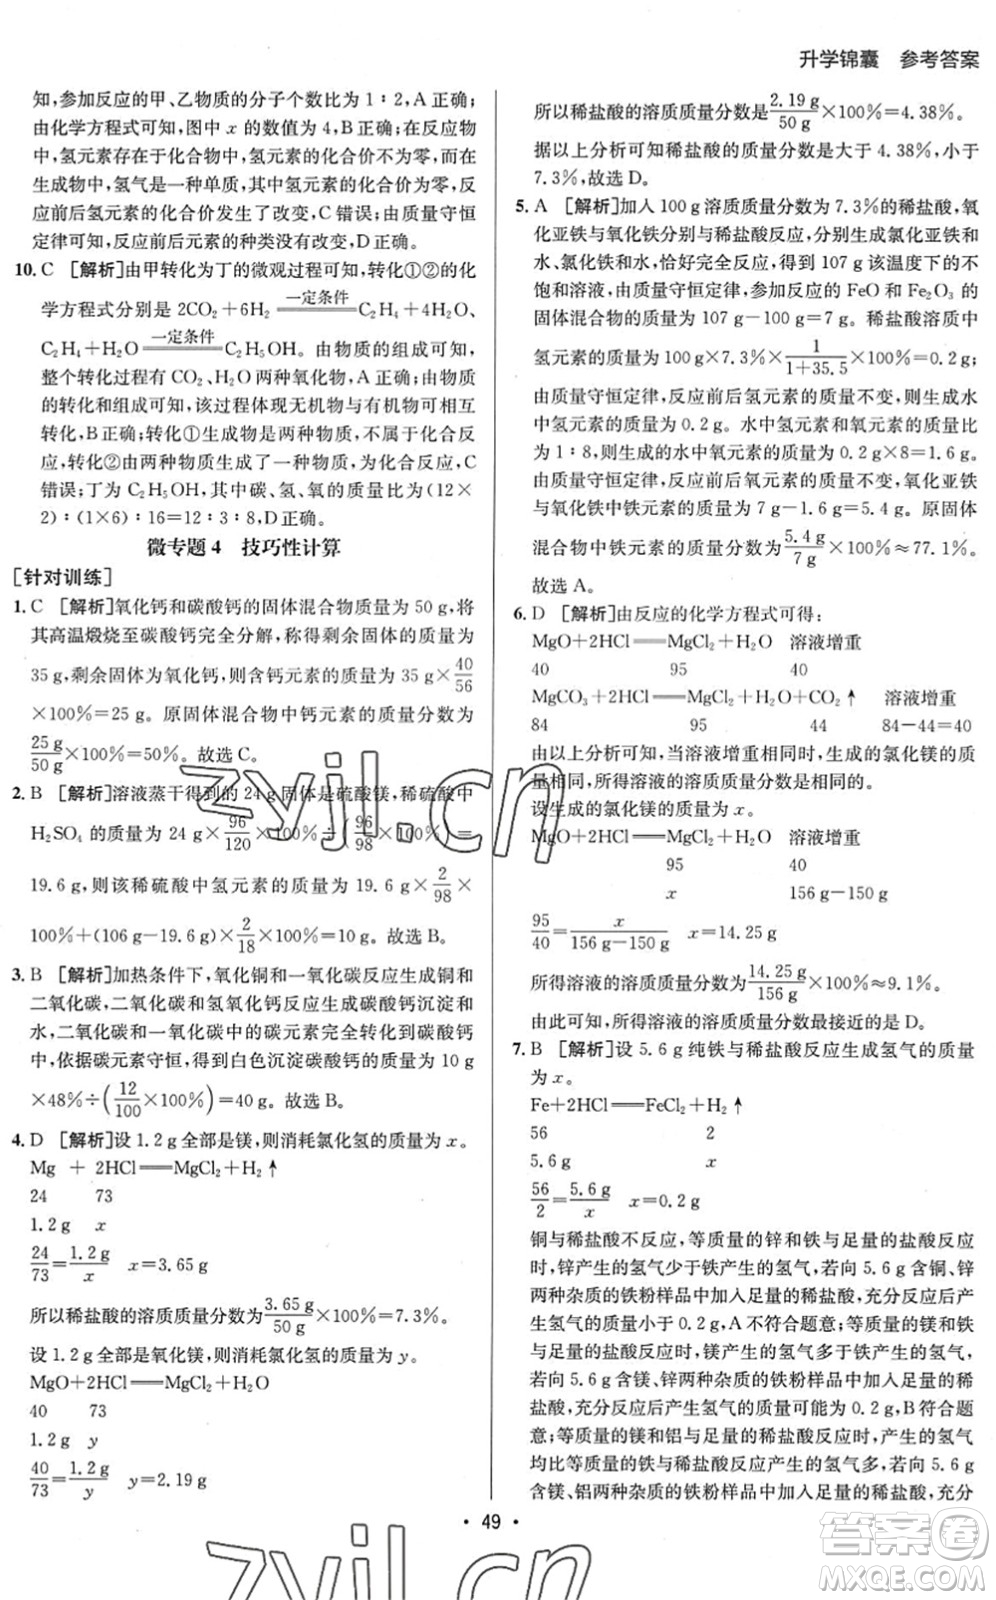 升学锦囊　参考答案
知,参加反应的甲、乙物质的分子个数比为1∶2,A正确;
由化学方程式可知,图中 x 的数值为4,B正确;在反应物
中,氢元素存在于化合物中,氢元素的化合价不为零,而
生成物中,氢气是一种单质,其中氢元素的化合价为零,
反应前后氢元素的化合价发生了改变,C错误;由质量守恒
定律可知,反应前后元素的种类没有改变,D正确。
10. C　[解析]由甲转化为丁的微观过程可知,转化①②的化
学方程式分别是 2CO₂+6H₂ ══一定条件══ C₂H₄+4H₂O、
C₂H₄+H₂O ══一定条件══ C₂H₅OH。由物质的组成可知,
整个转化过程有 CO₂、H₂O 两种氧化物,A正确;由物质
的转化和组成可知,该过程体现无机物与有机物可相互
转化,B正确;转化①生成物是两种物质,不属于化合反
应,转化②由两种物质生成一种物质,属于化合反应,C
错误;丁为 C₂H₅OH,其中碳、氢、氧的质量比为(12×
2)∶(1×6)∶16=12∶3∶8,D正确。
微专题4　技巧性计算
[针对训练]
1. C　[解析]氧化钙和碳酸钙的固体混合物质量为 50 g,将
其高温煅烧至碳酸钙完全分解,称得剩余固体的质量为
35 g,剩余固体为氧化钙,则含钙元素的质量为 35 g×40/56
×100%=25 g。原固体混合物中钙元素的质量分数为
25 g/50 g×100%=50%。故选 C。
2. B　[解析]溶液蒸干得到的 24 g 固体是硫酸镁,稀硫酸中
H₂SO₄ 的质量为 24 g×96/120×100%÷(96/98×100%)=
19.6 g,则该稀硫酸中氢元素的质量为 19.6 g×2/98×
100%+(106 g−19.6 g)×2/18×100%=10 g。故选 B。
3. B　[解析]加热条件下,氧化铜和一氧化碳反应生成铜和
二氧化碳,二氧化碳和氢氧化钙反应生成碳酸钙沉淀和
水,二氧化碳和一氧化碳中的碳元素完全转化到碳酸钙
中,依据碳元素守恒,得到白色沉淀碳酸钙的质量为 10 g
×48%÷(12/100×100%)=40 g。故选 B。
4. D　[解析]设 1.2 g 全部是镁,则消耗氯化氢的质量为 x。
Mg + 2HCl══MgCl₂+H₂↑
24　73
1.2 g　x
24/73=1.2 g/x　x=3.65 g
所以稀盐酸的溶质质量分数为3.65 g/50 g×100%=7.3%。
设 1.2 g 全部是氧化镁,则消耗氯化氢的质量为 y。
MgO+2HCl══MgCl₂+H₂O
40　73
1.2 g　y
40/73=1.2 g/y　y=2.19 g
所以稀盐酸的溶质质量分数是2.19 g/50 g×100%=4.38%。
据以上分析可知稀盐酸的质量分数是大于 4.38%,小于
7.3%,故选 D。
5. A　[解析]加入 100 g 溶质质量分数为 7.3%的稀盐酸,氧
化亚铁与氧化铁分别与稀盐酸反应,分别生成氯化亚铁和
水、氯化铁和水,恰好完全反应,得到 107 g 该温度下的不
饱和溶液,质量守恒定律,参加反应的 FeO 和 Fe₂O₃ 的
固体混合物的质量为 107 g−100 g=7 g。稀盐酸溶质中
氢元素的质量为 100 g×7.3%×1/(1+35.5)×100%=0.2 g;
由质量守恒定律,反应前后氢元素的质量不变,则生成水
中氢元素的质量为 0.2 g。水中氢元素和氧元素的质量比
为1∶8,则生成的水中氧元素的质量为 0.2 g×8=1.6 g。
由质量守恒定律,反应前后氧元素的质量不变,氧化亚铁与
氧化铁中铁元素的质量为 7 g−1.6 g=5.4 g。原固体
混合物中铁元素的质量分数为5.4 g/7 g×100%≈77.1%。
故选 A。
6. D　[解析]由反应的化学方程式可得:
MgO+2HCl══MgCl₂+H₂O　溶液增重
40　95　40
MgCO₃+2HCl══MgCl₂+H₂O+CO₂↑　溶液增重
84　95　44　84−44=40
由以上分析可知,当溶液增重相同时,生成的氯化镁的质
量相同,所得溶液的溶质质量分数是相同的。
设生成的氯化镁的质量为 x。
MgO+2HCl══MgCl₂+H₂O　溶液增重
95　40
x　156 g−150 g
95/40=x/(156 g−150 g)　x=14.25 g
所得溶液的溶质质量分数为14.25 g/156 g×100%≈9.1%。
由此可知,所得溶液的溶质质量分数最接近的是 D。
7. B　[解析]设 5.6 g 纯铁与稀盐酸反应生成氢气的质量
为 x。
Fe+2HCl══FeCl₂+H₂↑
56　2
5.6 g　x
56/2=5.6 g/x　x=0.2 g
铜与稀盐酸不反应,等质量的锌和铁与足量的盐酸反应
时,锌产生的氢气少于铁产生的氢气,若向 5.6 g 含铜、锌
两种杂质的铁粉样品中加入足量的稀盐酸,充分反应后产
生氢气的质量小于 0.2 g,A 不符合题意;等质量的镁和铁
与足量的盐酸反应时,镁产生的氢气多于铁产生的氢气,
若向 5.6 g 含镁、锌两种杂质的铁粉样品中加入足量的稀
盐酸,充分反应后产生氢气的质量可能为 0.2 g,B 符合题
意;等质量的镁和铝与足量的稀盐酸反应时,产生的氢气
均比等质量的铁与稀盐酸反应产生的氢气多,若向 5.6 g
含镁、铝两种杂质的铁粉样品中加入足量的稀盐酸,充分
• 49 •
zyjl.cn
zyjl.cn
答案卷
MXQE.COM